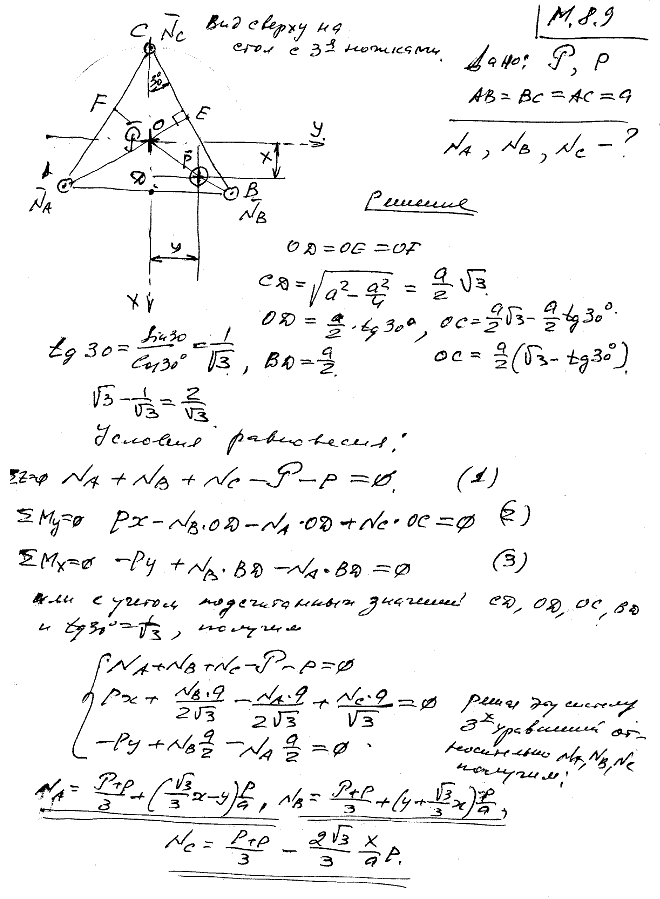 М.8.9
Вид сверху на
стол с 3я ножками.
Дано: P, p
AB=BC=AC=a
N_A, N_B, N_C – ?
C N̄_C
30°
F
O
E
P̄
y
x
A
N̄_A
D
p̄
B
N̄_B
y
x
Решение
OD=OE=OF
CD=√(a²−a²/4) = a/2 √3
OD = a/2 · tg30°, OC=a/2 √3−a/2 tg30°
tg 30=sin30/cos30°=1/√3, BD=a/2 OC = a/2(√3−tg30°)
√3−1/√3=2/√3
Условия равновесия:
Σz=0 N_A + N_B + N_C − P − p = 0. (1)
ΣMy=0 px − N_B·OD − N_A·OD + N_C·OC = 0 (2)
ΣMx=0 −py + N_B·BD − N_A·BD = 0 (3)
или с учетом подсчитанных значений CD, OD, OC, BD
и tg30°=1/√3, получим
N_A+N_B+N_C−P−p=0
px + N_B·a/2√3 − N_A·a/2√3 + N_C·a/√3 = 0
−py + N_B a/2 − N_A a/2 = 0.
решая эту систему
3х уравнений от-
носительно N_A, N_B, N_C
получим:
N_A = P+p/3 + (√3/3 x−y) p/a, N_B = P+p/3 + (y+√3/3 x) p/a,
N_C = P+p/3 − 2√3/3 x/a p.